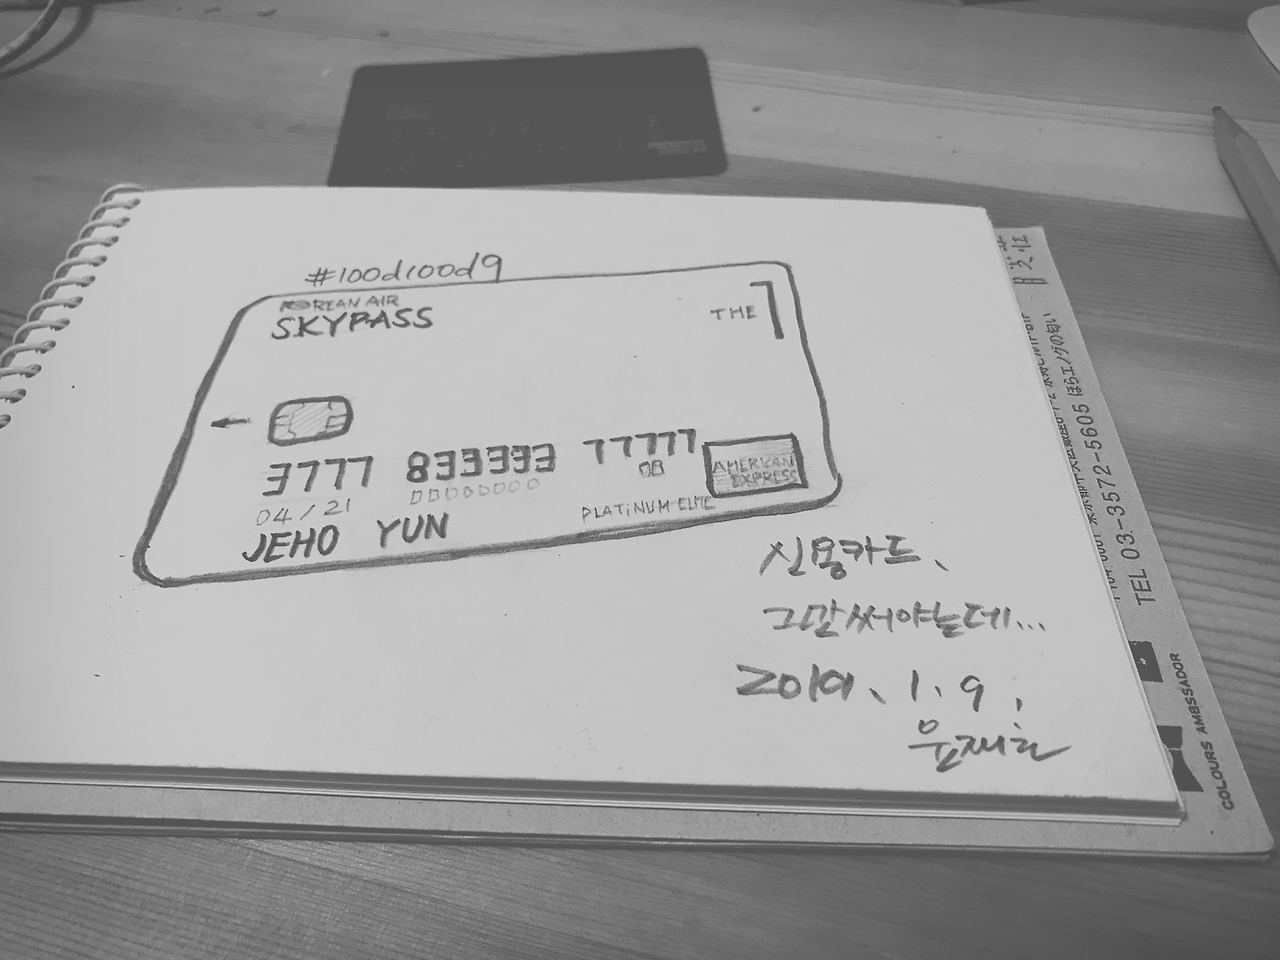 #100d100d9
KOREAN AIR
SKYPASS
THE 1
3777 833333 77777
08
AMERICAN
EXPRESS
04/21
PLATINUM ELITE
JEHO YUN
신용카드、
그만써야는데...
2019、1、9、
윤재호
TEL 03-3572-5605 ほらエノグの匂い
COLOURS AMBSSADOR